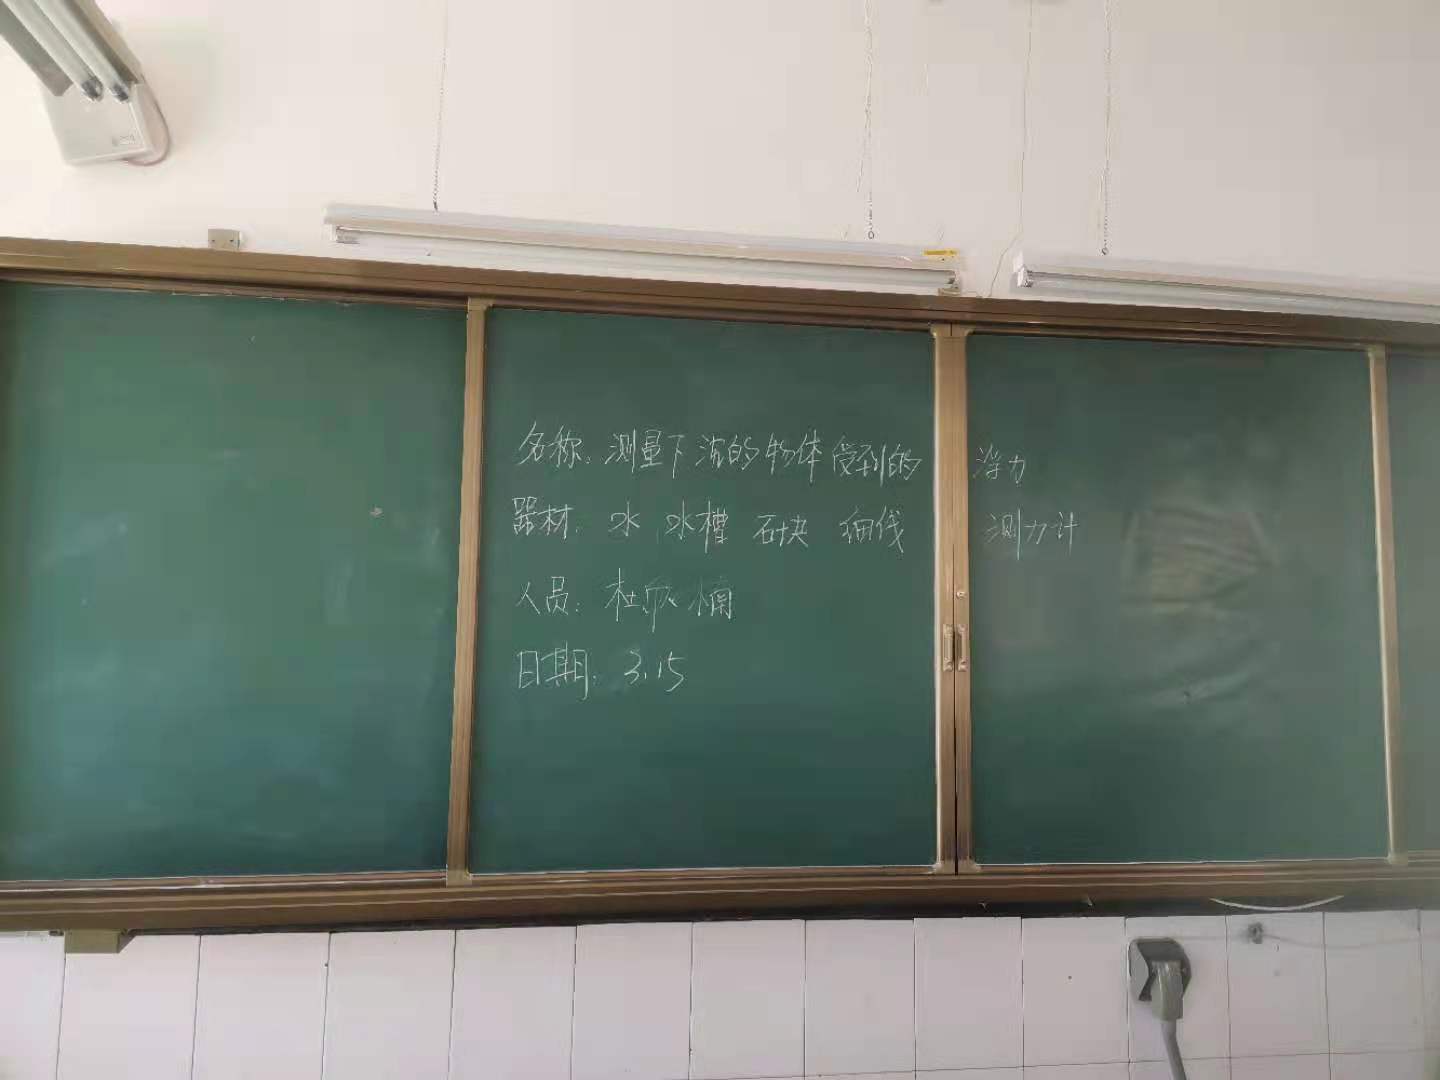 名称：测量下沉的物体受到的浮力
器材：水 水槽 石块 细线 测力计
人员：杜 楠
日期：3.15